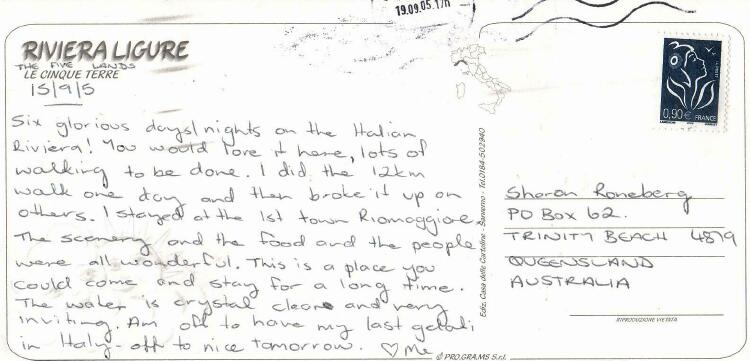 19.09.05
RIVIERA LIGURE
THE FIVE LANDS
LE CINQUE TERRE
15/9/5
Six glorious days/nights on the Italian
Riviera! You would love it here, lots of
walking to be done. I did the 12km
walk one day and then broke it up on
others. I stayed at the 1st town Riomaggiore.
The scenery and the food and the people
were all wonderful. This is a place you
could come and stay for a long time.
The water is crystal clear and very
inviting. Am off to have my last gelati
in Italy - off to nice tomorrow. ♡ Me
Ediz. Casa delle Cartoline - Sanremo - Tel. 0184-502940
© PRO.GRA.MS S.r.l.
0,90 € FRANCE
Sharon Roneberg
PO Box 62.
TRINITY BEACH 4879
QUEENSLAND
AUSTRALIA
RIPRODUZIONE VIETATA